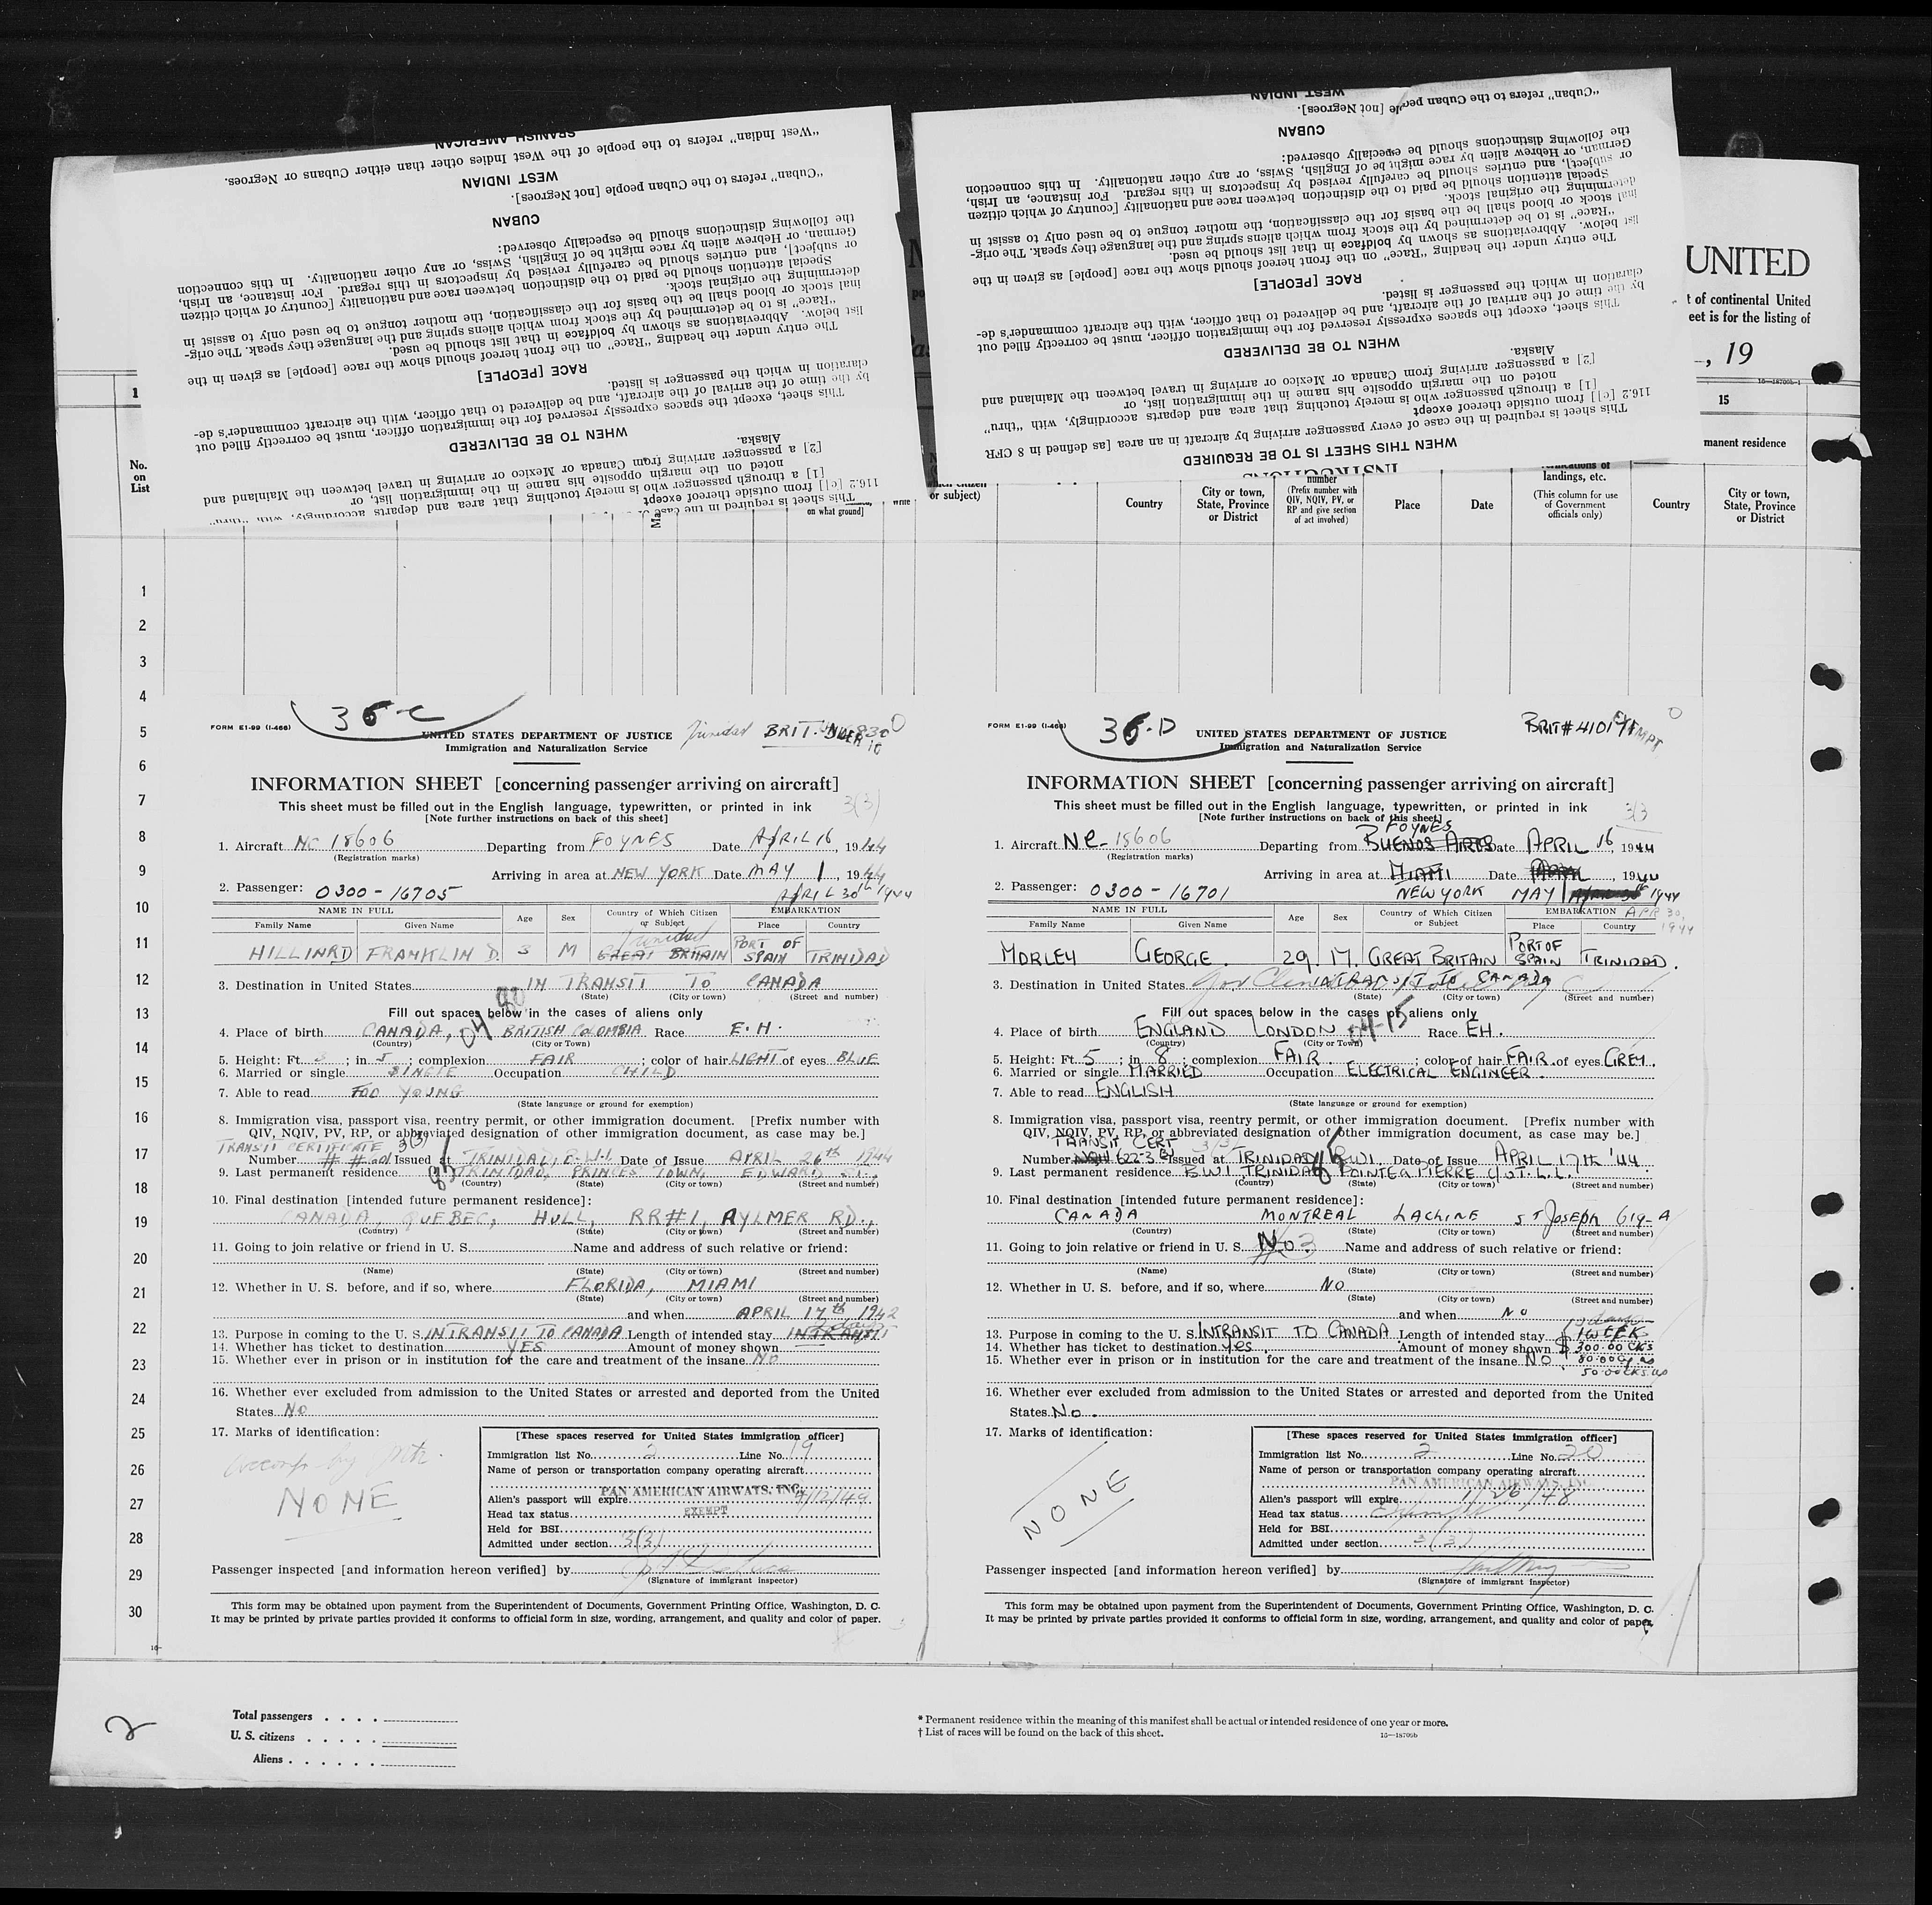 "West Indian" refers to the people of the West Indies other than either Cubans or Negroes.
WEST INDIAN
"Cuban" refers to the Cuban people [not Negroes].
CUBAN
the following distinctions should be especially observed:
German, or Hebrew alien by race might be of English, Swiss, or any other nationality. In this connection
or subject], and entries should be carefully revised by inspectors in this regard. For instance, an Irish,
Special attention should be paid to the distinction between race and nationality [country of which citizen
determining the original stock.
inal stock or blood shall be the basis for the classification, the mother tongue to be used only to assist in
"Race" is to be determined by the stock from which aliens spring and the language they speak. The orig-
list below. Abbreviations as shown by boldface in that list should be used.
The entry under the heading "Race" on the front hereof should show the race [people] as given in the
RACE [PEOPLE]
claration in which the passenger is listed.
by the time of the arrival of the aircraft, and be delivered to that officer, with the aircraft commander's de-
This sheet, except the spaces expressly reserved for the immigration officer, must be correctly filled out
WHEN TO BE DELIVERED
Alaska.
[2] a passenger arriving from Canada or Mexico or arriving in travel between the Mainland and
noted on the margin opposite his name in the immigration list, or
[1] a through passenger who is merely touching that area and departs accordingly, with "thru"
116.2 [c]] from outside thereof except
This sheet is required in the case of
WEST INDIAN
"Cuban" refers to the Cuban people [not Negroes].
CUBAN
the following distinctions should be especially observed:
German, or Hebrew alien by race might be of English, Swiss, or any other nationality. In this connection
or subject], and entries should be carefully revised by inspectors in this regard. For instance, an Irish,
Special attention should be paid to the distinction between race and nationality [country of which citizen
determining the original stock.
inal stock or blood shall be the basis for the classification, the mother tongue to be used only to assist in
"Race" is to be determined by the stock from which aliens spring and the language they speak. The orig-
list below. Abbreviations as shown by boldface in that list should be used.
The entry under the heading "Race" on the front hereof should show the race [people] as given in the
RACE [PEOPLE]
claration in which the passenger is listed.
by the time of the arrival of the aircraft, and be delivered to that officer, with the aircraft commander's de-
This sheet, except the spaces expressly reserved for the immigration officer, must be correctly filled out
WHEN TO BE DELIVERED
Alaska.
[2] a passenger arriving from Canada or Mexico or arriving in travel between the Mainland and
noted on the margin opposite his name in the immigration list, or
[1] a through passenger who is merely touching that area and departs accordingly, with "thru"
116.2 [c]] from outside thereof except
This sheet is required in the case of every passenger arriving by aircraft in an area [as defined in 8 CFR
WHEN THIS SHEET IS TO BE REQUIRED
INSTRUCTIONS
UNITED
t of continental United
eet is for the listing of
, 19
15
manent residence
No. on List
on what ground]
or subject)
Country
City or town, State, Province or District
number (Prefix number with QIV, NQIV, PV, or RP and give section of act involved)
Place
Date
landings, etc. (This column for use of Government officials only)
Country
City or town, State, Province or District
1
2
3
4
5
6
7
8
9
10
11
12
13
14
15
16
17
18
19
20
21
22
23
24
25
26
27
28
29
30
FORM E1-99 (I-466)
UNITED STATES DEPARTMENT OF JUSTICE
Trinidad BRIT.
UNDER 16
Immigration and Naturalization Service
INFORMATION SHEET [concerning passenger arriving on aircraft]
This sheet must be filled out in the English language, typewritten, or printed in ink 3(3)
[Note further instructions on back of this sheet]
1. Aircraft NC 18606 Departing from FOYNES Date APRIL 16, 1944
(Registration marks)
Arriving in area at NEW YORK Date MAY 1, 1944
2. Passenger: 0300-16705 APRIL 30th 1944
NAME IN FULL Age Sex Country of Which Citizen or Subject EMBARKATION
Family Name Given Name Place Country
Trinidad
HILLIARD FRANKLIN D. 3 M GREAT BRITAIN PORT OF SPAIN TRINIDAD
3. Destination in United States IN TRANSIT TO CANADA
(State) (City or town) (Street and number)
Fill out spaces below in the cases of aliens only
4. Place of birth CANADA, BRITISH COLOMBIA Race E.H.
(Country) (City or Town)
5. Height: Ft. 3; in 5; complexion FAIR; color of hair LIGHT of eyes BLUE
6. Married or single SINGLE Occupation CHILD
7. Able to read TOO YOUNG
(State language or ground for exemption)
8. Immigration visa, passport visa, reentry permit, or other immigration document. [Prefix number with
QIV, NQIV, PV, RP, or abbreviated designation of other immigration document, as case may be.]
TRANSIT CERTIFICATE 3(3)
Number Issued at TRINIDAD, B.W.I. Date of Issue APRIL 26th 1944
9. Last permanent residence TRINIDAD, PRINCES TOWN, EDWARD ST.,
(Country) (State) (City or town) (Street and number)
10. Final destination [intended future permanent residence]:
CANADA, QUEBEC, HULL, RR#1, AYLMER RD.,
(Country) (State) (City or town) (Street and number)
11. Going to join relative or friend in U. S. Name and address of such relative or friend:
(Name) (State) (City or town) (Street and number)
12. Whether in U. S. before, and if so, where FLORIDA, MIAMI
(State) (City or town) (Street and number)
and when APRIL 17th 1942
2 days
13. Purpose in coming to the U. S. INTRANSIT TO CANADA Length of intended stay INTRANSIT
14. Whether has ticket to destination YES Amount of money shown
15. Whether ever in prison or in institution for the care and treatment of the insane NO
16. Whether ever excluded from admission to the United States or arrested and deported from the United
States NO
17. Marks of identification:
Accomp by Mtr.
NONE
[These spaces reserved for United States immigration officer]
Immigration list No. 2 Line No. 19
Name of person or transportation company operating aircraft
PAN AMERICAN AIRWAYS, INC.
Alien's passport will expire
Head tax status EXEMPT
Held for BSI
Admitted under section 3(3)
Passenger inspected [and information hereon verified] by
(Signature of immigrant inspector)
This form may be obtained upon payment from the Superintendent of Documents, Government Printing Office, Washington, D. C.
It may be printed by private parties provided it conforms to official form in size, wording, arrangement, and quality and color of paper.
FORM E1-99 (I-466)
UNITED STATES DEPARTMENT OF JUSTICE
EXEMPT
Immigration and Naturalization Service
INFORMATION SHEET [concerning passenger arriving on aircraft]
This sheet must be filled out in the English language, typewritten, or printed in ink
[Note further instructions on back of this sheet]
FOYNES
1. Aircraft NC-18606 Departing from BUENOS AIRES Date APRIL 16, 1944
(Registration marks)
Arriving in area at MIAMI Date APRIL, 1944
2. Passenger: 0300-16701 NEW YORK MAY 1 1944
APR 30, 1944
NAME IN FULL Age Sex Country of Which Citizen or Subject EMBARKATION
Family Name Given Name Place Country
MORLEY GEORGE. 29. M. GREAT BRITAIN PORT OF SPAIN TRINIDAD.
3. Destination in United States INTRANSIT TO CANADA
(State) (City or town) (Street and number)
Fill out spaces below in the cases of aliens only
4. Place of birth ENGLAND LONDON Race EH.
(Country) (City or Town)
5. Height: Ft. 5; in 8; complexion FAIR.; color of hair FAIR of eyes GREY.
6. Married or single MARRIED Occupation ELECTRICAL ENGINEER.
7. Able to read ENGLISH
(State language or ground for exemption)
8. Immigration visa, passport visa, reentry permit, or other immigration document. [Prefix number with
QIV, NQIV, PV, RP, or abbreviated designation of other immigration document, as case may be.]
TRANSIT CERT
Number 622-3 Issued at TRINIDAD BWI Date of Issue APRIL 17th '44
9. Last permanent residence B.W.I. TRINIDAD POINTE A PIERRE c/o T.L.L.
(Country) (State) (City or town) (Street and number)
10. Final destination [intended future permanent residence]:
CANADA MONTREAL LACHINE ST JOSEPH 619-A
(Country) (State) (City or town) (Street and number)
11. Going to join relative or friend in U. S. No. Name and address of such relative or friend:
(Name) (State) (City or town) (Street and number)
12. Whether in U. S. before, and if so, where NO
(State) (City or town) (Street and number)
and when NO
13. Purpose in coming to the U. S. INTRANSIT TO CANADA Length of intended stay 1 WEEK
14. Whether has ticket to destination Yes. Amount of money shown $300.00 CKS
15. Whether ever in prison or in institution for the care and treatment of the insane NO.
16. Whether ever excluded from admission to the United States or arrested and deported from the United
States No.
17. Marks of identification:
NONE
[These spaces reserved for United States immigration officer]
Immigration list No. 2 Line No. 20
Name of person or transportation company operating aircraft
PAN AMERICAN AIRWAYS, INC.
Alien's passport will expire 1/26/48
Head tax status Exempt
Held for BSI
Admitted under section 3(3)
Passenger inspected [and information hereon verified] by
(Signature of immigrant inspector)
This form may be obtained upon payment from the Superintendent of Documents, Government Printing Office, Washington, D. C.
It may be printed by private parties provided it conforms to official form in size, wording, arrangement, and quality and color of paper.
2
Total passengers . . . .
U. S. citizens . . . . .
Aliens . . . . . .
* Permanent residence within the meaning of this manifest shall be actual or intended residence of one year or more.
† List of races will be found on the back of this sheet.